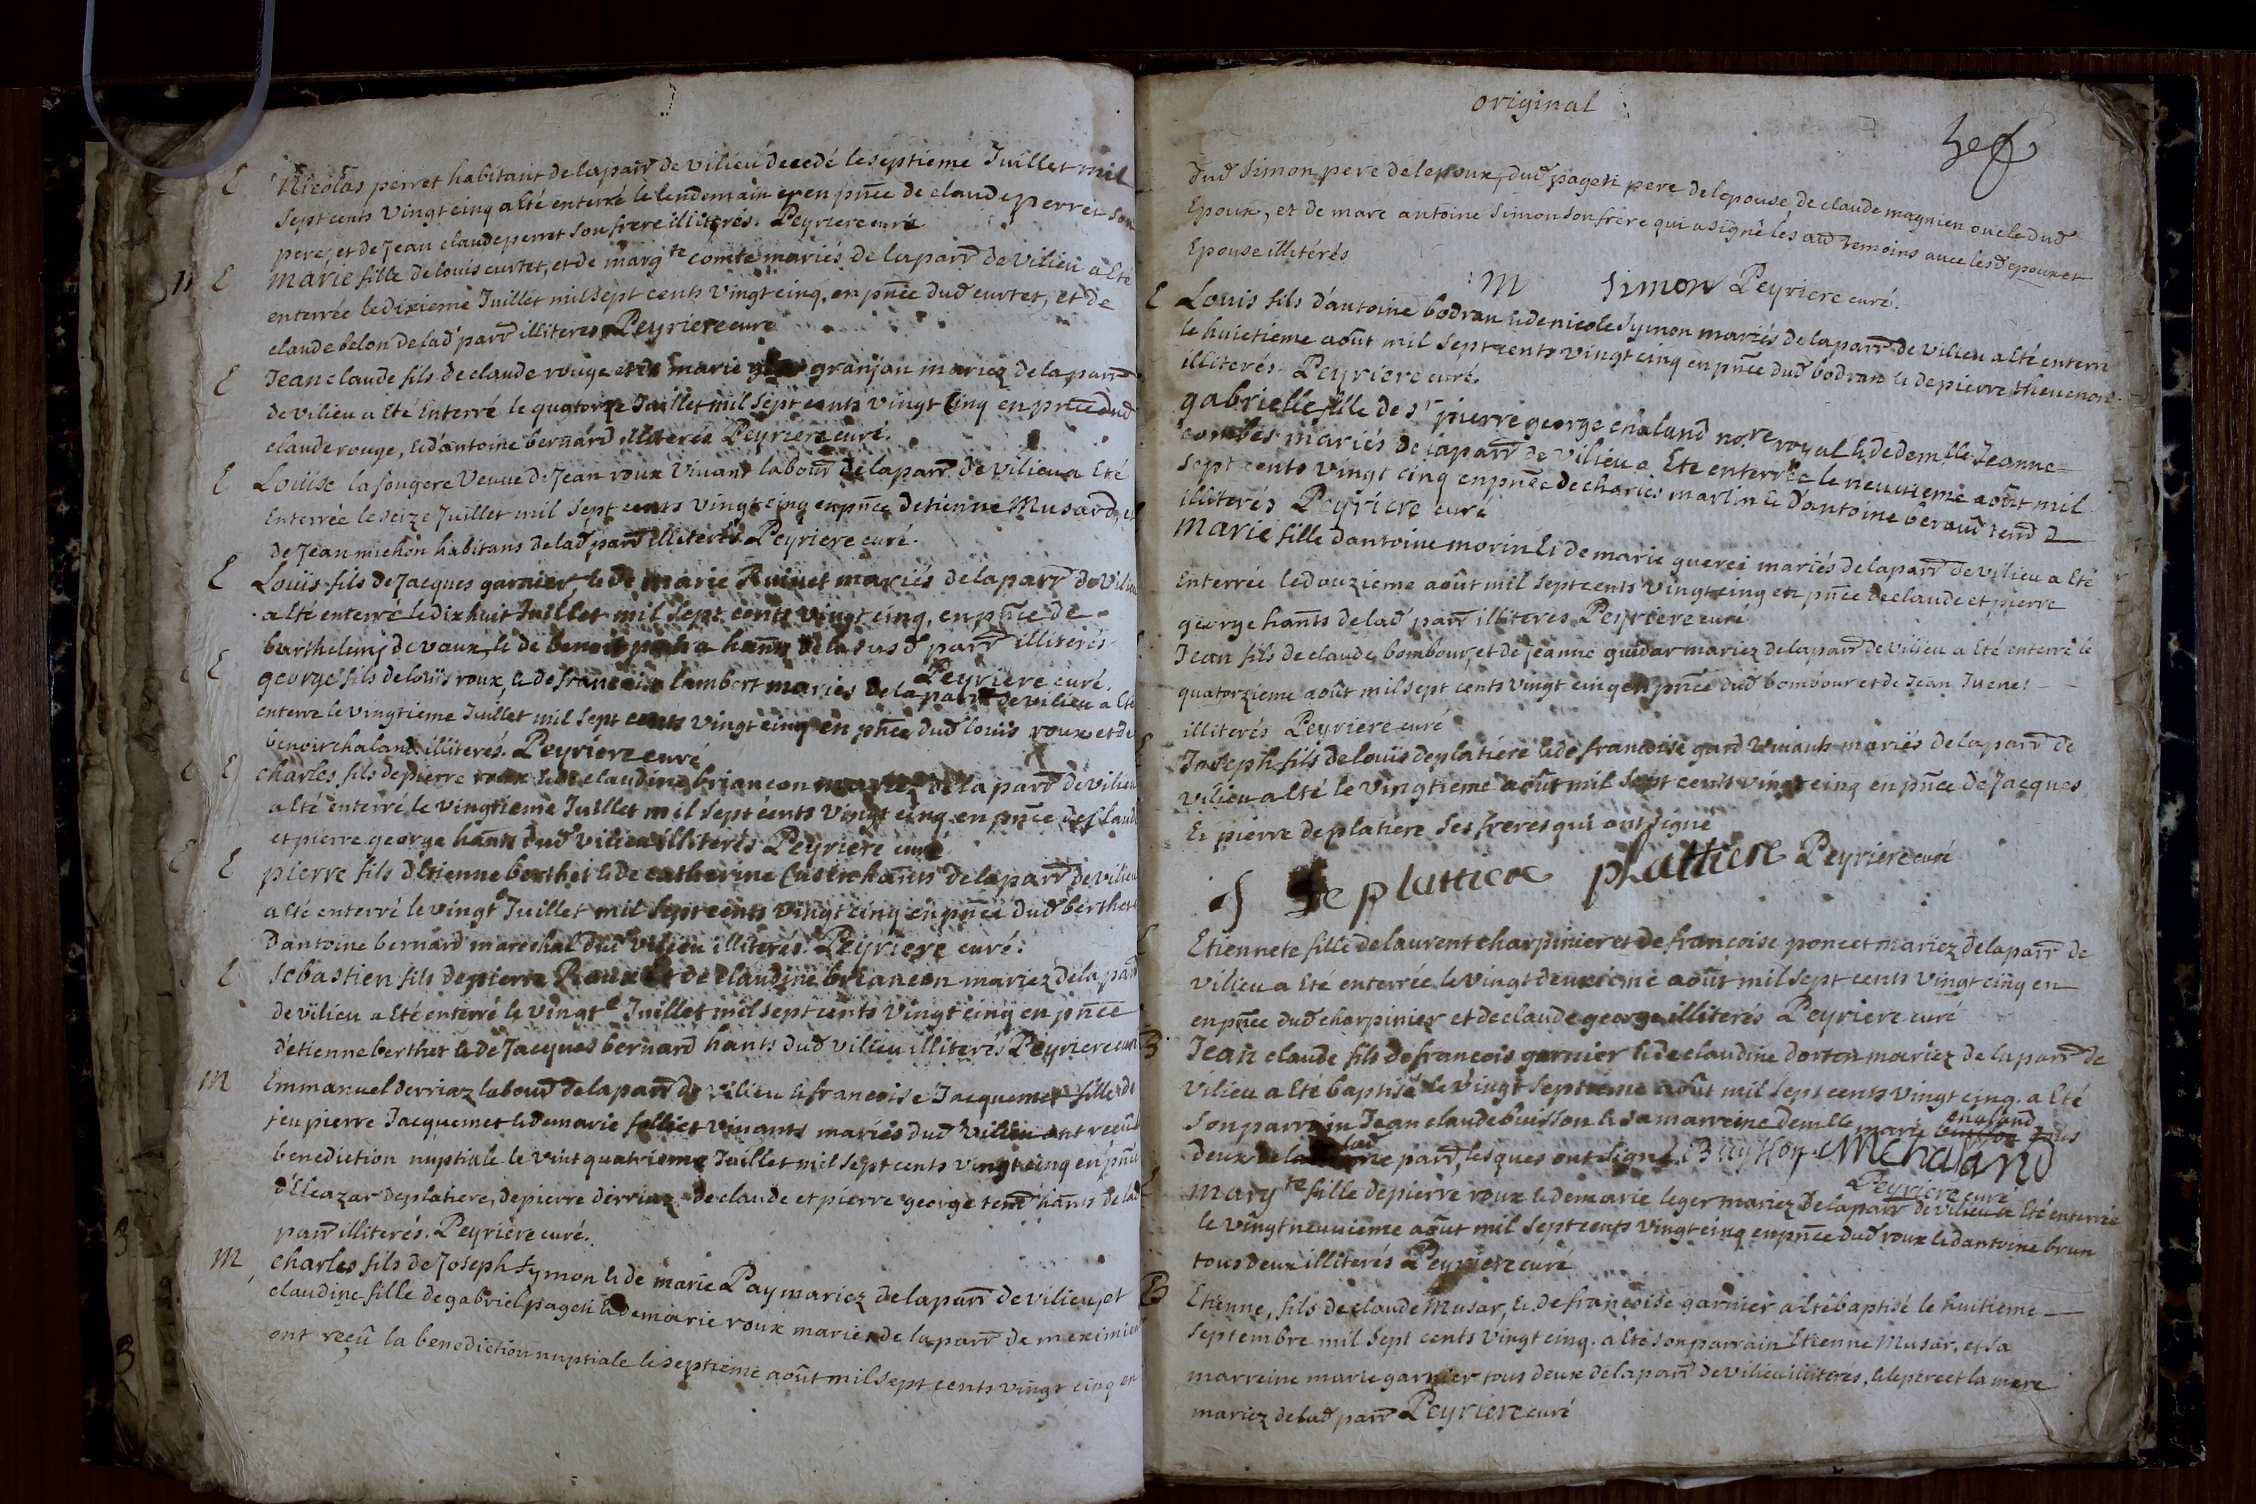 E Nicolas perret habitant de la parr de vilieu decedé le septieme Juillet mil
sept cents vingt cinq a Eté enterré le lendemain en pnce de claude perret son
pere, et de Jean claude perret son frere illiterés. Peyriere curé
E marie fille de louis curtet, et de margte comte mariés de la parr de vilieu a Eté
enterrée le dixieme Juillet mil sept cents vingt cinq, en pnce dud curtet, et de
claude belon de lad parr illiteres Peyriere curé
E Jean claude fils de claude rouge et de marie granjan mariez de la parr
de vilieu a Eté Enterré le quatorze Juillet mil sept cents vingt cinq en pnce dud
claude rouge, & d'antoine bernard illiterés Peyriere curé.
E Louise la fougere Veuve de Jean roux Vivant labour de la parr de vilieu a Eté
Enterrée le seize Juillet mil sept cents vingt cinq en pnce d'etienne Musard, et
de Jean michon habitans de lad parr illiterés Peyriere curé.
E Louis fils de Jacques garnier, & de marie Ruinet mariés de la parr de vilieu
a Eté enterré le dix huit Juillet mil sept cents vingt cinq, en pnce de
barthelemy de vaux, & de benoit hants de la susd parr illiterés
Peyriere curé.
E george fils de louis roux, & de francoise lambert mariés de la parr de vilieu a Eté
enterré le vingtieme Juillet mil sept cents vingt cinq en pnce dud louis roux et de
benoit chaland illiterés. Peyriere curé
E charles fils de pierre roux & de claudine briancon mariez de la parr de vilieu
a Eté enterré le vingtieme Juillet mil sept cents vingt cinq en pnce de claude
et pierre george hants dud vilieu illiterés Peyriere curé
E pierre fils d'Etienne berthet & de catherine hants de la parr de vilieu
a Eté enterré le vingte Juillet mil sept cents vingt cinq en pnce dud berthet
d'antoine bernard marechal dud vilieu illiterés. Peyriere curé.
E Sebastien fils de pierre Roux et de claudine briancon mariez de la parr
de vilieu a Eté enterré le vingte Juillet mil sept cents vingt cinq en pnce
d'etienne berthet & de Jacques bernard hants dud vilieu illiterés Peyriere curé
M Emmanuel derriaz labour de la parr de vilieu & francoise Jacquemet fille de
feu pierre Jacquemet & de marie folliet vivants mariés dud vilieu ont receû la
benediction nuptiale le vint quatrieme Juillet mil sept cents vingt cinq en pnce
d'Eleazar deplatiere, de pierre derriaz de claude et pierre george tem hants de lad
parr illiterés. Peyriere curé.
M charles fils de Joseph symon & de marie Pay mariez de la parr de vilieu, et
claudine fille de gabriel pageti & de marie roux mariés de la parr de meximieu
ont reçû la benediction nuptiale le septieme août mil sept cents vingt cinq en
original
dud simon pere de lepoux, dud pageti pere de lepouse de claude magnien oncle dud
Epoux, et de marc antoine simon son frere qui a signé les aud temoins avec lesd epoux et
Epouse illitérés
M Simon Peyriere curé.
E Louis fils d'antoine bodran & de nicole symon mariés de la parr de vilieu a Eté enterré
le huictieme août mil sept cents vingt cinq en pnce dud bodran & de pierre thevenon
illiterés. Peyriere curé.
gabrielle fille de sr pierre george chaland nore royal & de demlle Jeanne
combes mariés de la parr de vilieu a Eté enterrée le neuvieme août mil
sept cents vingt cinq en pnce de charles martin & d'antoine beraud
illiterés Peyriere curé
Marie fille dantoine morin & de marie guerci mariés de la parr de vilieu a Eté
Enterrée le douzieme août mil sept cents vingt cinq en pnce de claude et pierre
george hants de lad parr illiteres Peyriere curé
Jean fils de claude bombour, et de jeanne guidar mariez de la parr de vilieu a Eté enterré le
quatorzieme août mil sept cents vingt cinq en pnce dud bombour et de Jean Juenet
illiterés Peyriere curé
Joseph fils de louis deplatiere & de francoise gard vivants mariés de la parr de
vilieu a Eté le vingtieme août mil sept cents vingt cinq en pnce de Jacques
Et pierre deplatiere ses freres qui ont signé
J Deplattiere plattiere Peyriere curé
Etiennete fille de laurent charpinier et de francoise poncet mariez de la parr de
vilieu a Eté enterrée le vingt deuxieme août mil sept cents vingt cinq en
en pnce dud charpinier et de claude george illiterés Peyriere curé
B Jean claude fils de francois garnier & de claudine dorton mariez de la parr de
vilieu a Eté baptisé le vingt septieme août mil sept cents vingt cinq. a Eté
son parrain Jean claude buisson & sa marreine demlle marie chaland tous
deux de lad parr, lesques ont signé. Buysson. M Chaland
Peyriere curé
margte fille de pierre roux & de marie leger mariez de la parr de vilieu a Eté enterrée
le vingt neuvieme août mil sept cents vingt cinq en pnce dud roux & dantoine brun
tous deux illiterés Peyriere curé
B Etienne, fils de claude Musar, & de francoise garnier a Eté baptisé le huitieme
septembre mil sept cents vingt cinq. a Eté son parrain Etienne Musar, et sa
marreine marie garnier tous deux de la parr de vilieu illiterés, & le pere et la mere
mariez de lad parr Peyriere curé